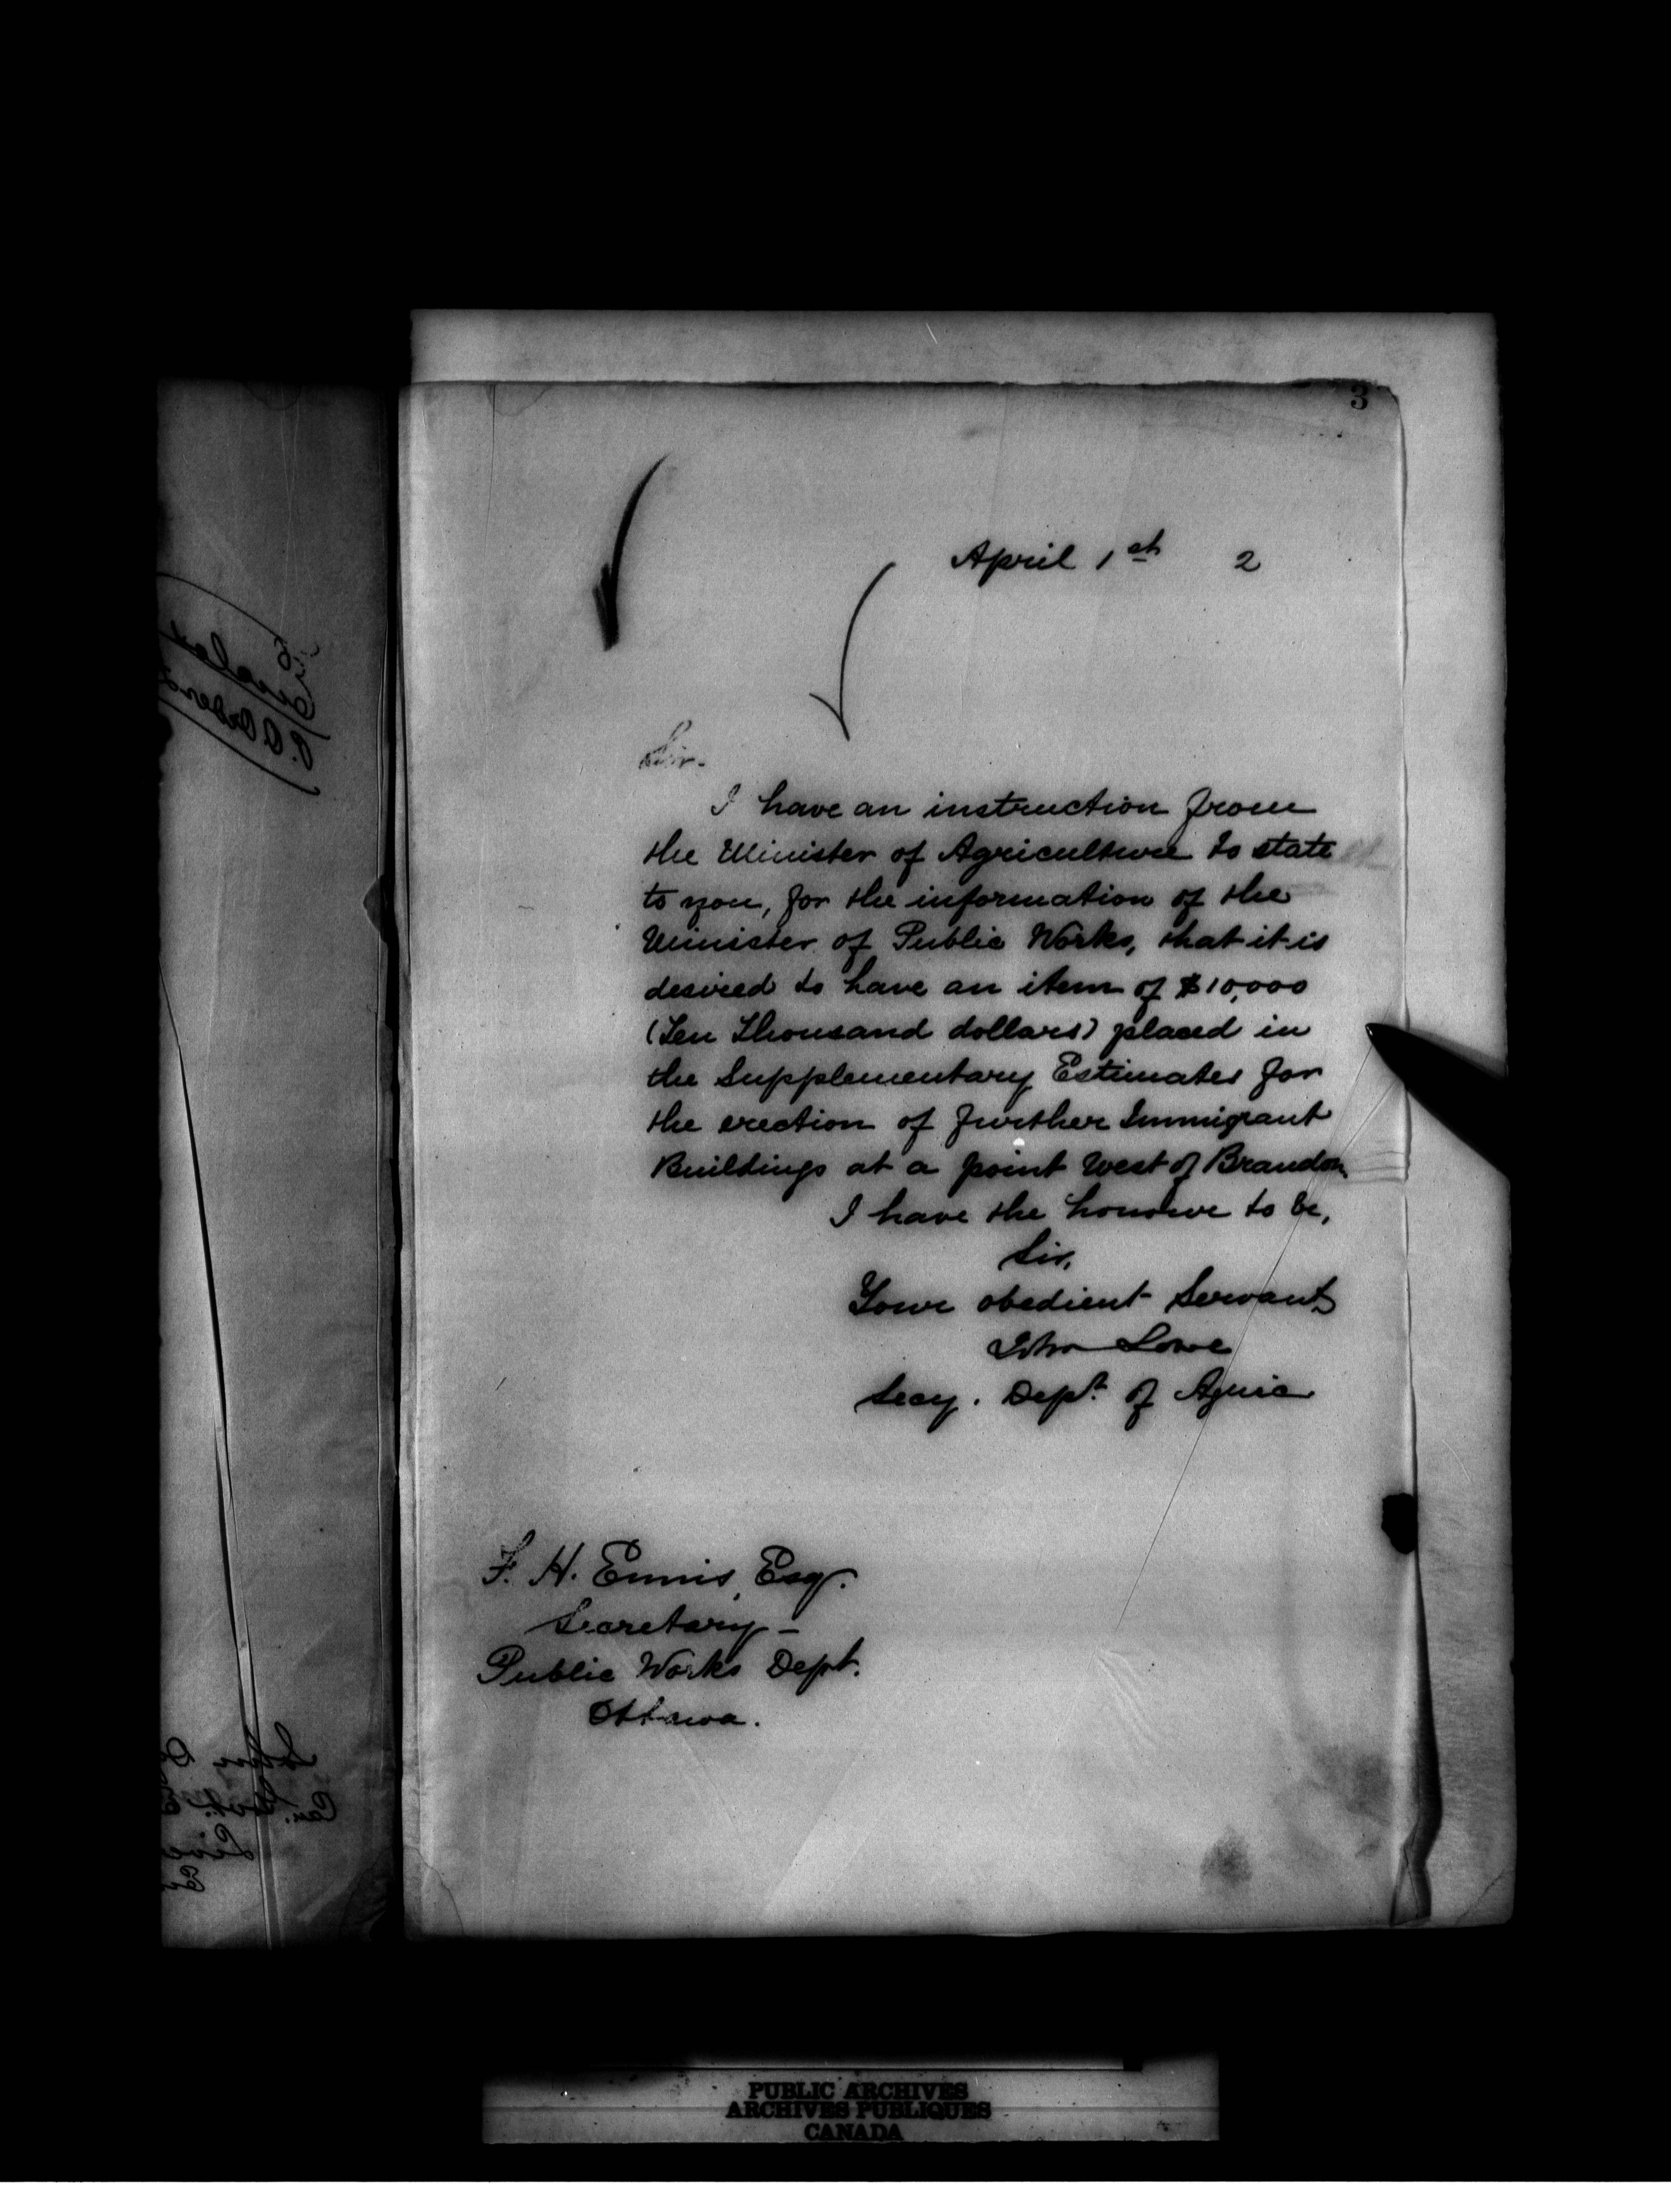 3
April 1st 2
Sir.
I have an instruction from
the Minister of Agriculture to state
to you, for the information of the
Minister of Public Works, that it is
desired to have an item of $10,000
(Ten Thousand dollars) placed in
the Supplementary Estimates for
the erection of further Immigrant
Buildings at a point West of Brandon
I have the honour to be,
Sir,
Your obedient Servant
John Lowe
Secy. Dept. of Agric
F. H. Ennis, Esq.
Secretary -
Public Works Dept.
Ottawa.
PUBLIC ARCHIVES
ARCHIVES PUBLIQUES
CANADA